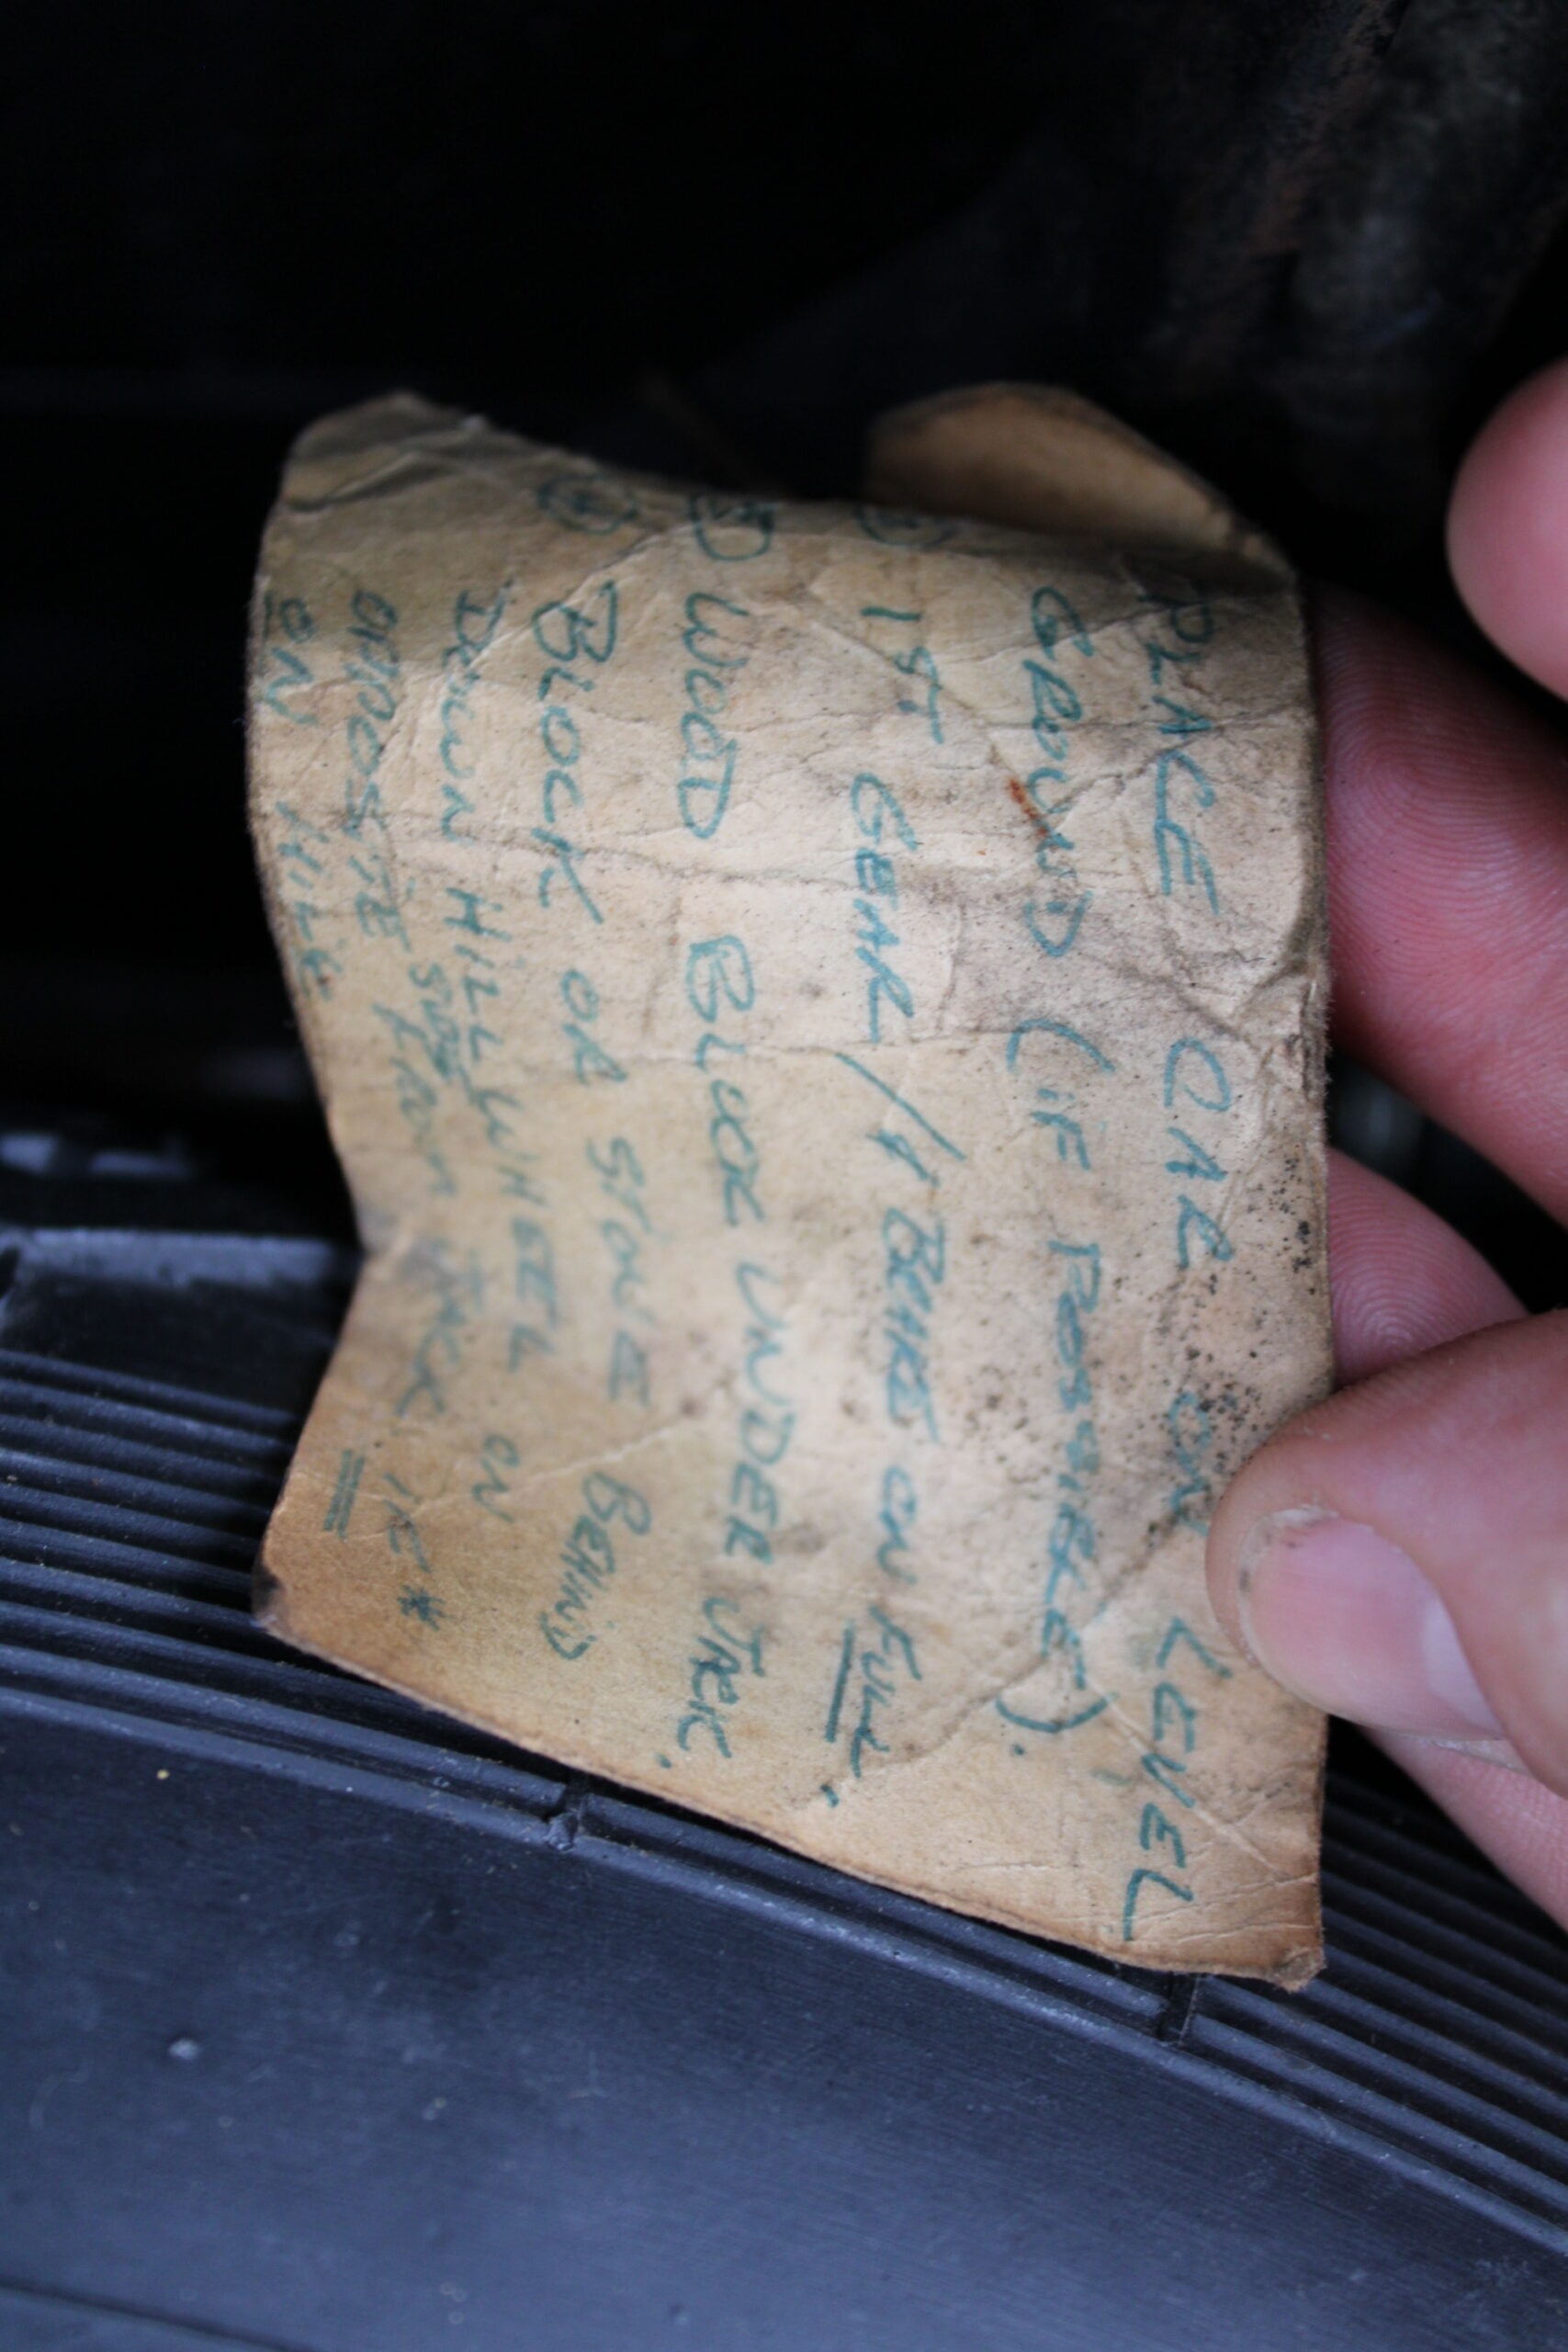 PLACE CAR ON LEVEL
GROUND (iF POSSIBLE).
1ST GEAR / H BRAKE ON FULL.
3) WOOD BLOCK UNDER JACK.
4) BLOCK OR STONE BEHIND
DOWN HILL WHEEL ON
OPPOSITE SIDE FROM JACK IF *
ON HILL